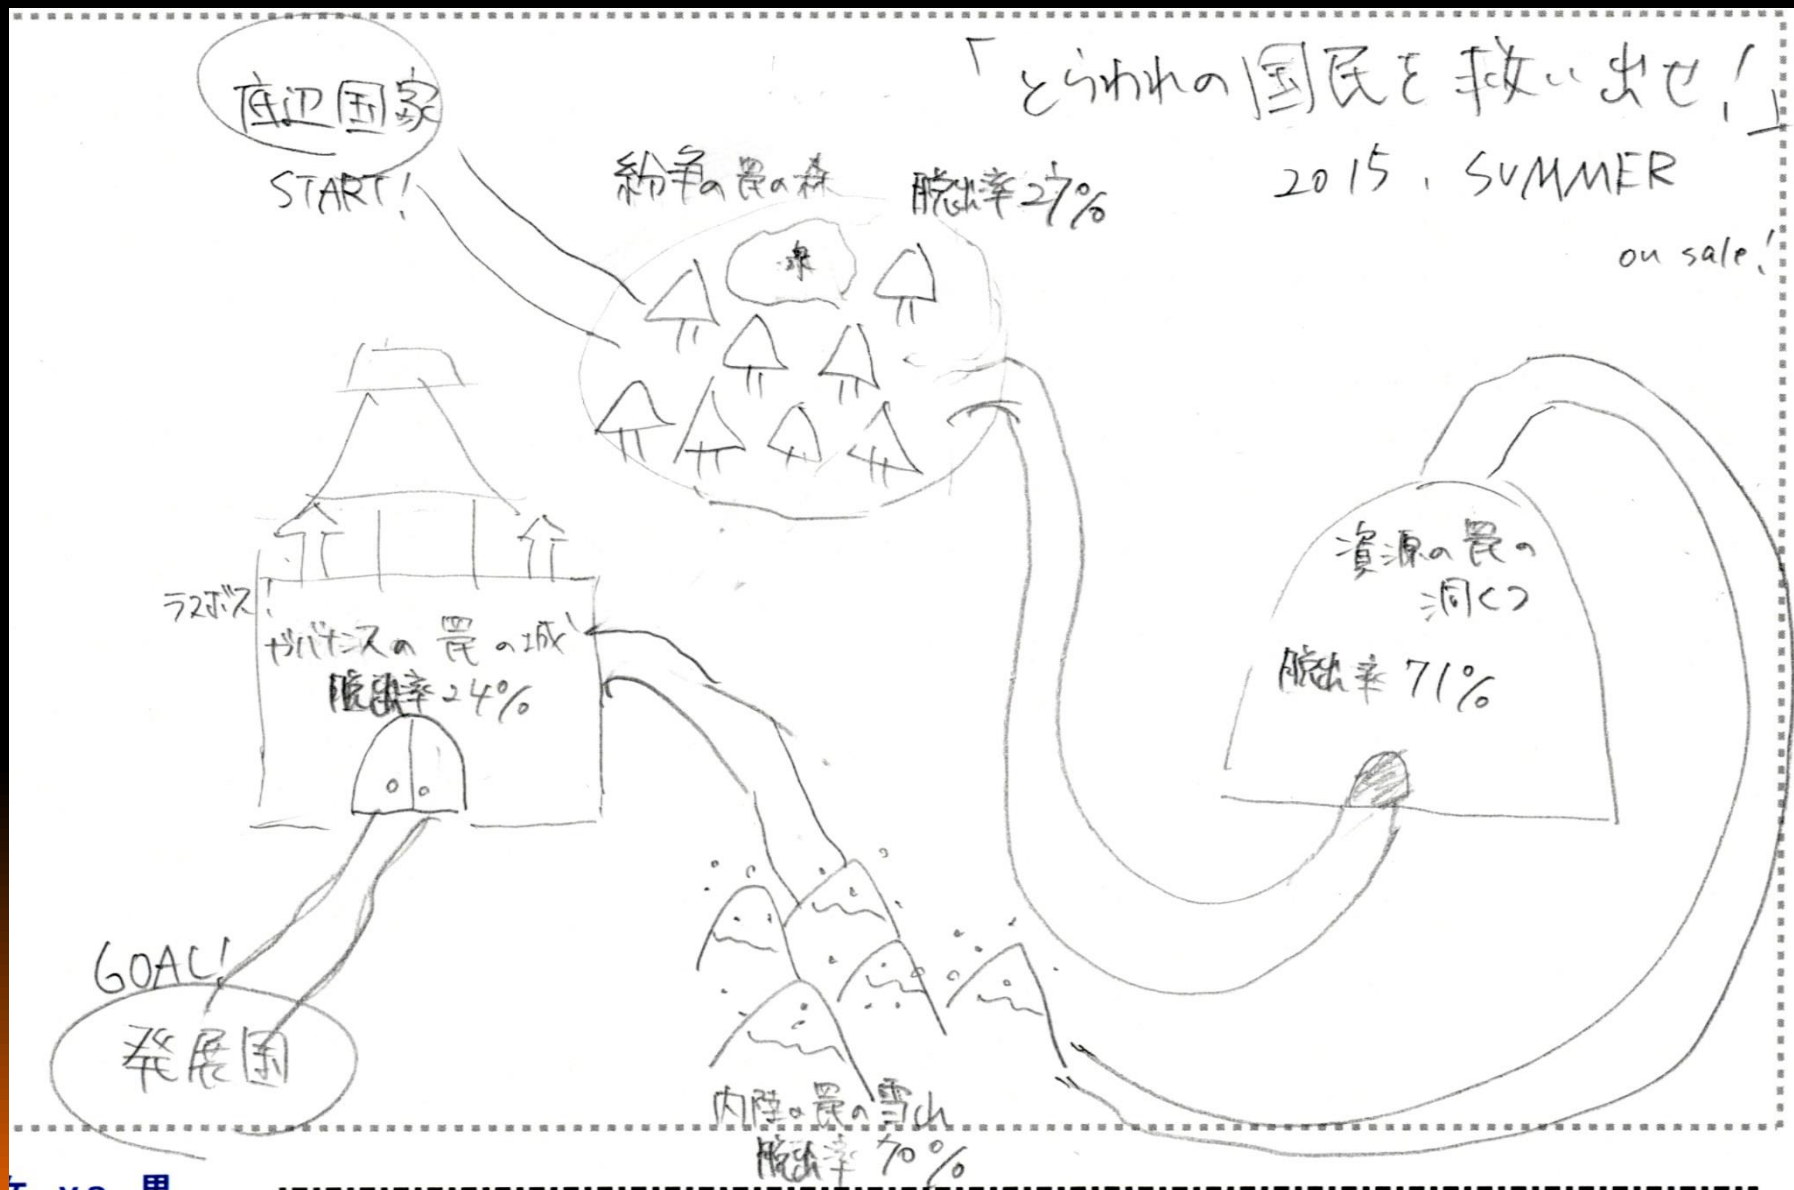 「とらわれの国民を救い出せ!」
2015. SUMMER
on sale!
底辺国家
START!
紛争の罠の森
脱出率27%
泉
資源の罠の
洞くつ
脱出率71%
ラスボス!
ガバナンスの罠の城
脱出率24%
GOAL!
発展国
内陸の罠の雪山
脱出率70%